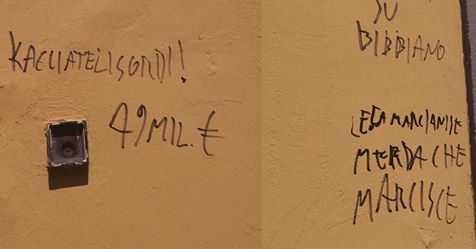 KACCIATELISORDI!
49 MIL. €
SU
BIBBIANO
LEGA
MERDA CHE
MARCISCE